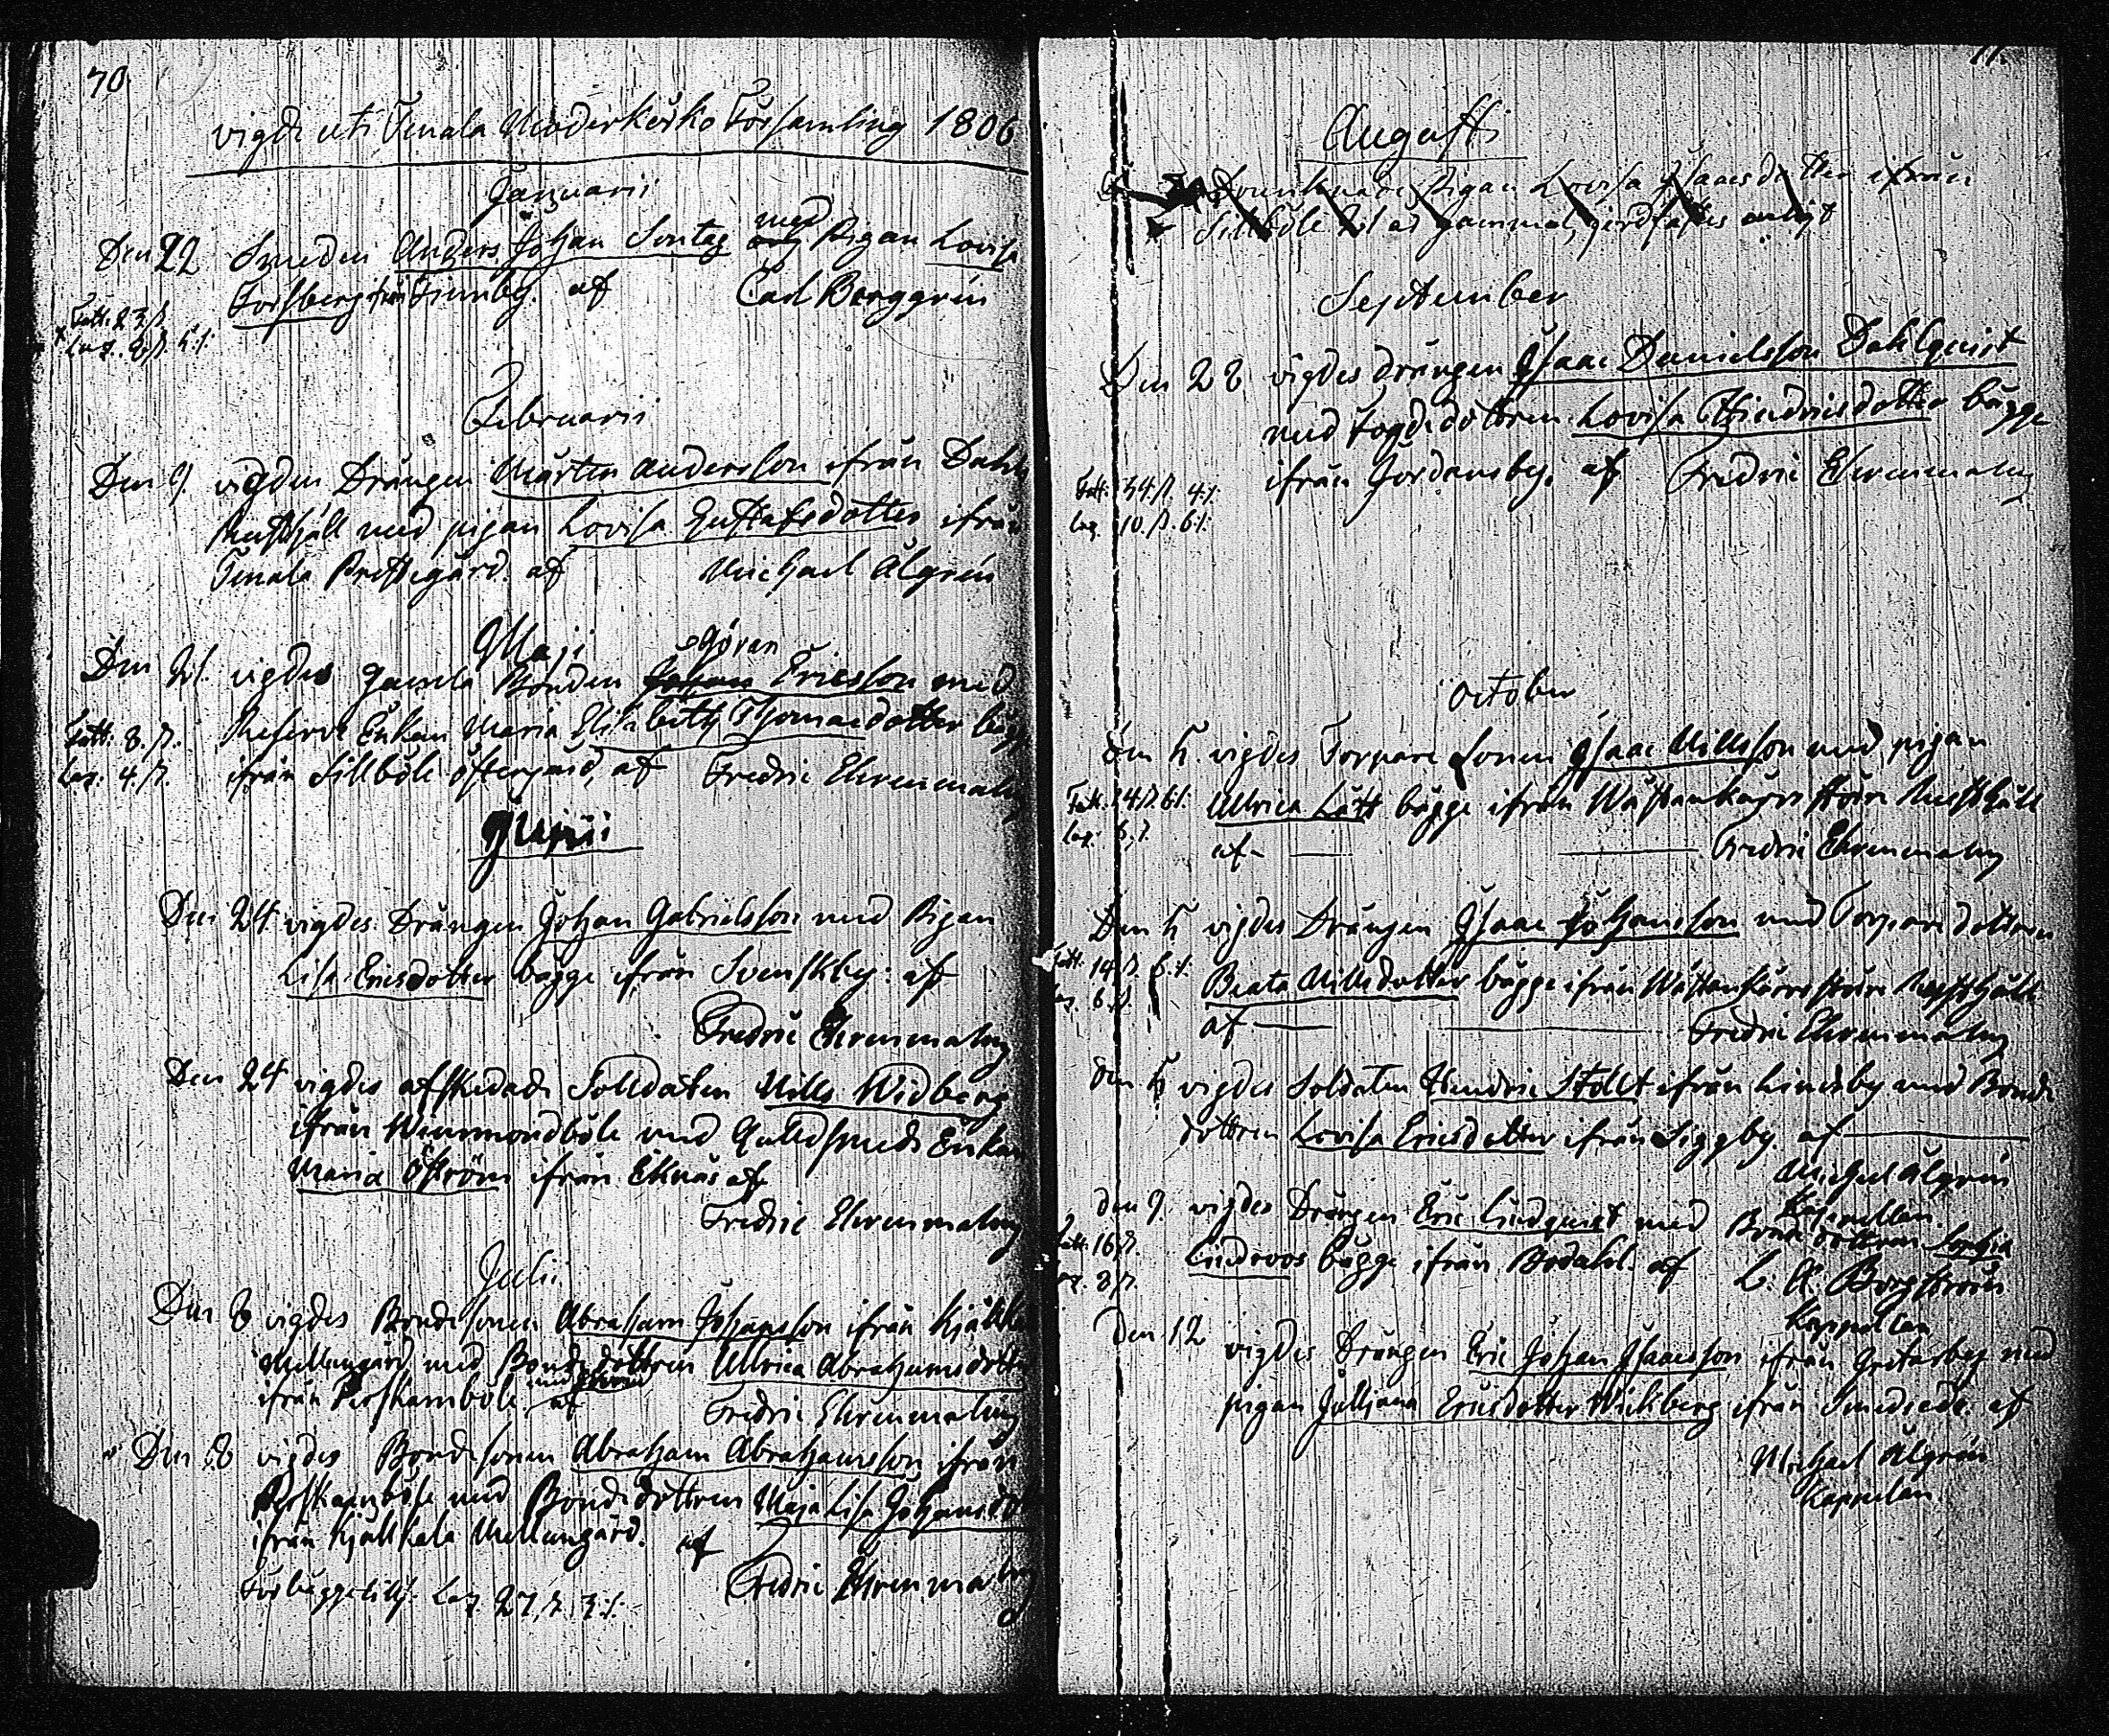 70
vigde uti Tenala Moderkörko Församling 1806
Januarii
Den 22 Smeden Anders Johan Sontag med Pigan Lovisa
Forsberg ifrån Finnby. af Carl Berggrén
Fatt. 23 /
Februarii
Den 9. vigden Drängen Mårten Andersson ifrån Dahls
Rusthåll med pigan Lovisa Gustafsdotter ifrån
Tenala Prestegård. af Michael Algrén
Maji
Göran
Den 21. vigdes gamla Bonden Johan Ericsson med
Reserve Enkan Maria Elisabeth Thomasdotter bägge
Fatt: 8. /.
Laz: 4. /.
ifrån Sillböle öftergård, af Fredric Ehrenmalm
Junii
Den 24. vigdes Drängen Johan Gabrielsson med Pigan
Lisa Ericsdotter bägge ifrån Svenskby: af
Fredric Ehrenmalm
Den 24 vigdes afskedade Solldaten Nills Widberg
ifrån med Gulldsmeds Enkan
Maria Öström ifrån Eknäs af
Fredric Ehrenmalm
Julii
Den 8 vigdes Bondesonen Abraham Johansson ifrån Kjälkala
Mellangård med Bondedottren Ullrica Abrahamsdotter
ifrån Perskamböle af Fredric Ehrenmalm
Den 8 vigdes Bondesonen Abraham Abrahamsson ifrån
Perskamböle med Bondedottren Maja Lisa Johansdot
ifrån Kjälkala Mellangård. af
Fredric Ehrenmalm
Augusti
Pigan Lovisa Isaacsdotter ifrån
Sillböle
September
Den 28 vigdes drängen Isaac Danielsson Dahlquist
med Fogdedottren Lovisa Hindricsdotter bägge
ifrån Jordansby. af Fredric Ehrenmalm
Fatt: 34. /. 4:/.
Laz. 10. /. 6:/.
October
den 5. vigdes Torpare Sonen Isaac Nillsson med pigan
Ullrica Lätt bägge ifrån Wästankärr störe Rusthåll
af Fredric Ehrenmalm
Den 5 vigdes Drängen Isaac Johansson med Torpare dottren
Beata Nillsdotter bägge ifrån Wästankärr störe Rusthåll
af Fredric Ehrenmalm
den 5 vigdes Soldaten Hindric Stollt ifrån Lindsby med Bonde
dottren Lovisa Ericsdotter ifrån Siggby. af
Michael Algrén
Kapellan.
den 9. vigdes Drängen Eric Lindquist med Bondedottren Sophia
Lindroos bägge ifrån Bodahl. af L. A. Borgström
Kappellan
Den 12 vigdes Drängen Eric Johan Isaacsson ifrån Gretarby med
pigan Julljana Ericsdotter Wickberg ifrån Smedsede. af
Michael Algrén
Kappelan.